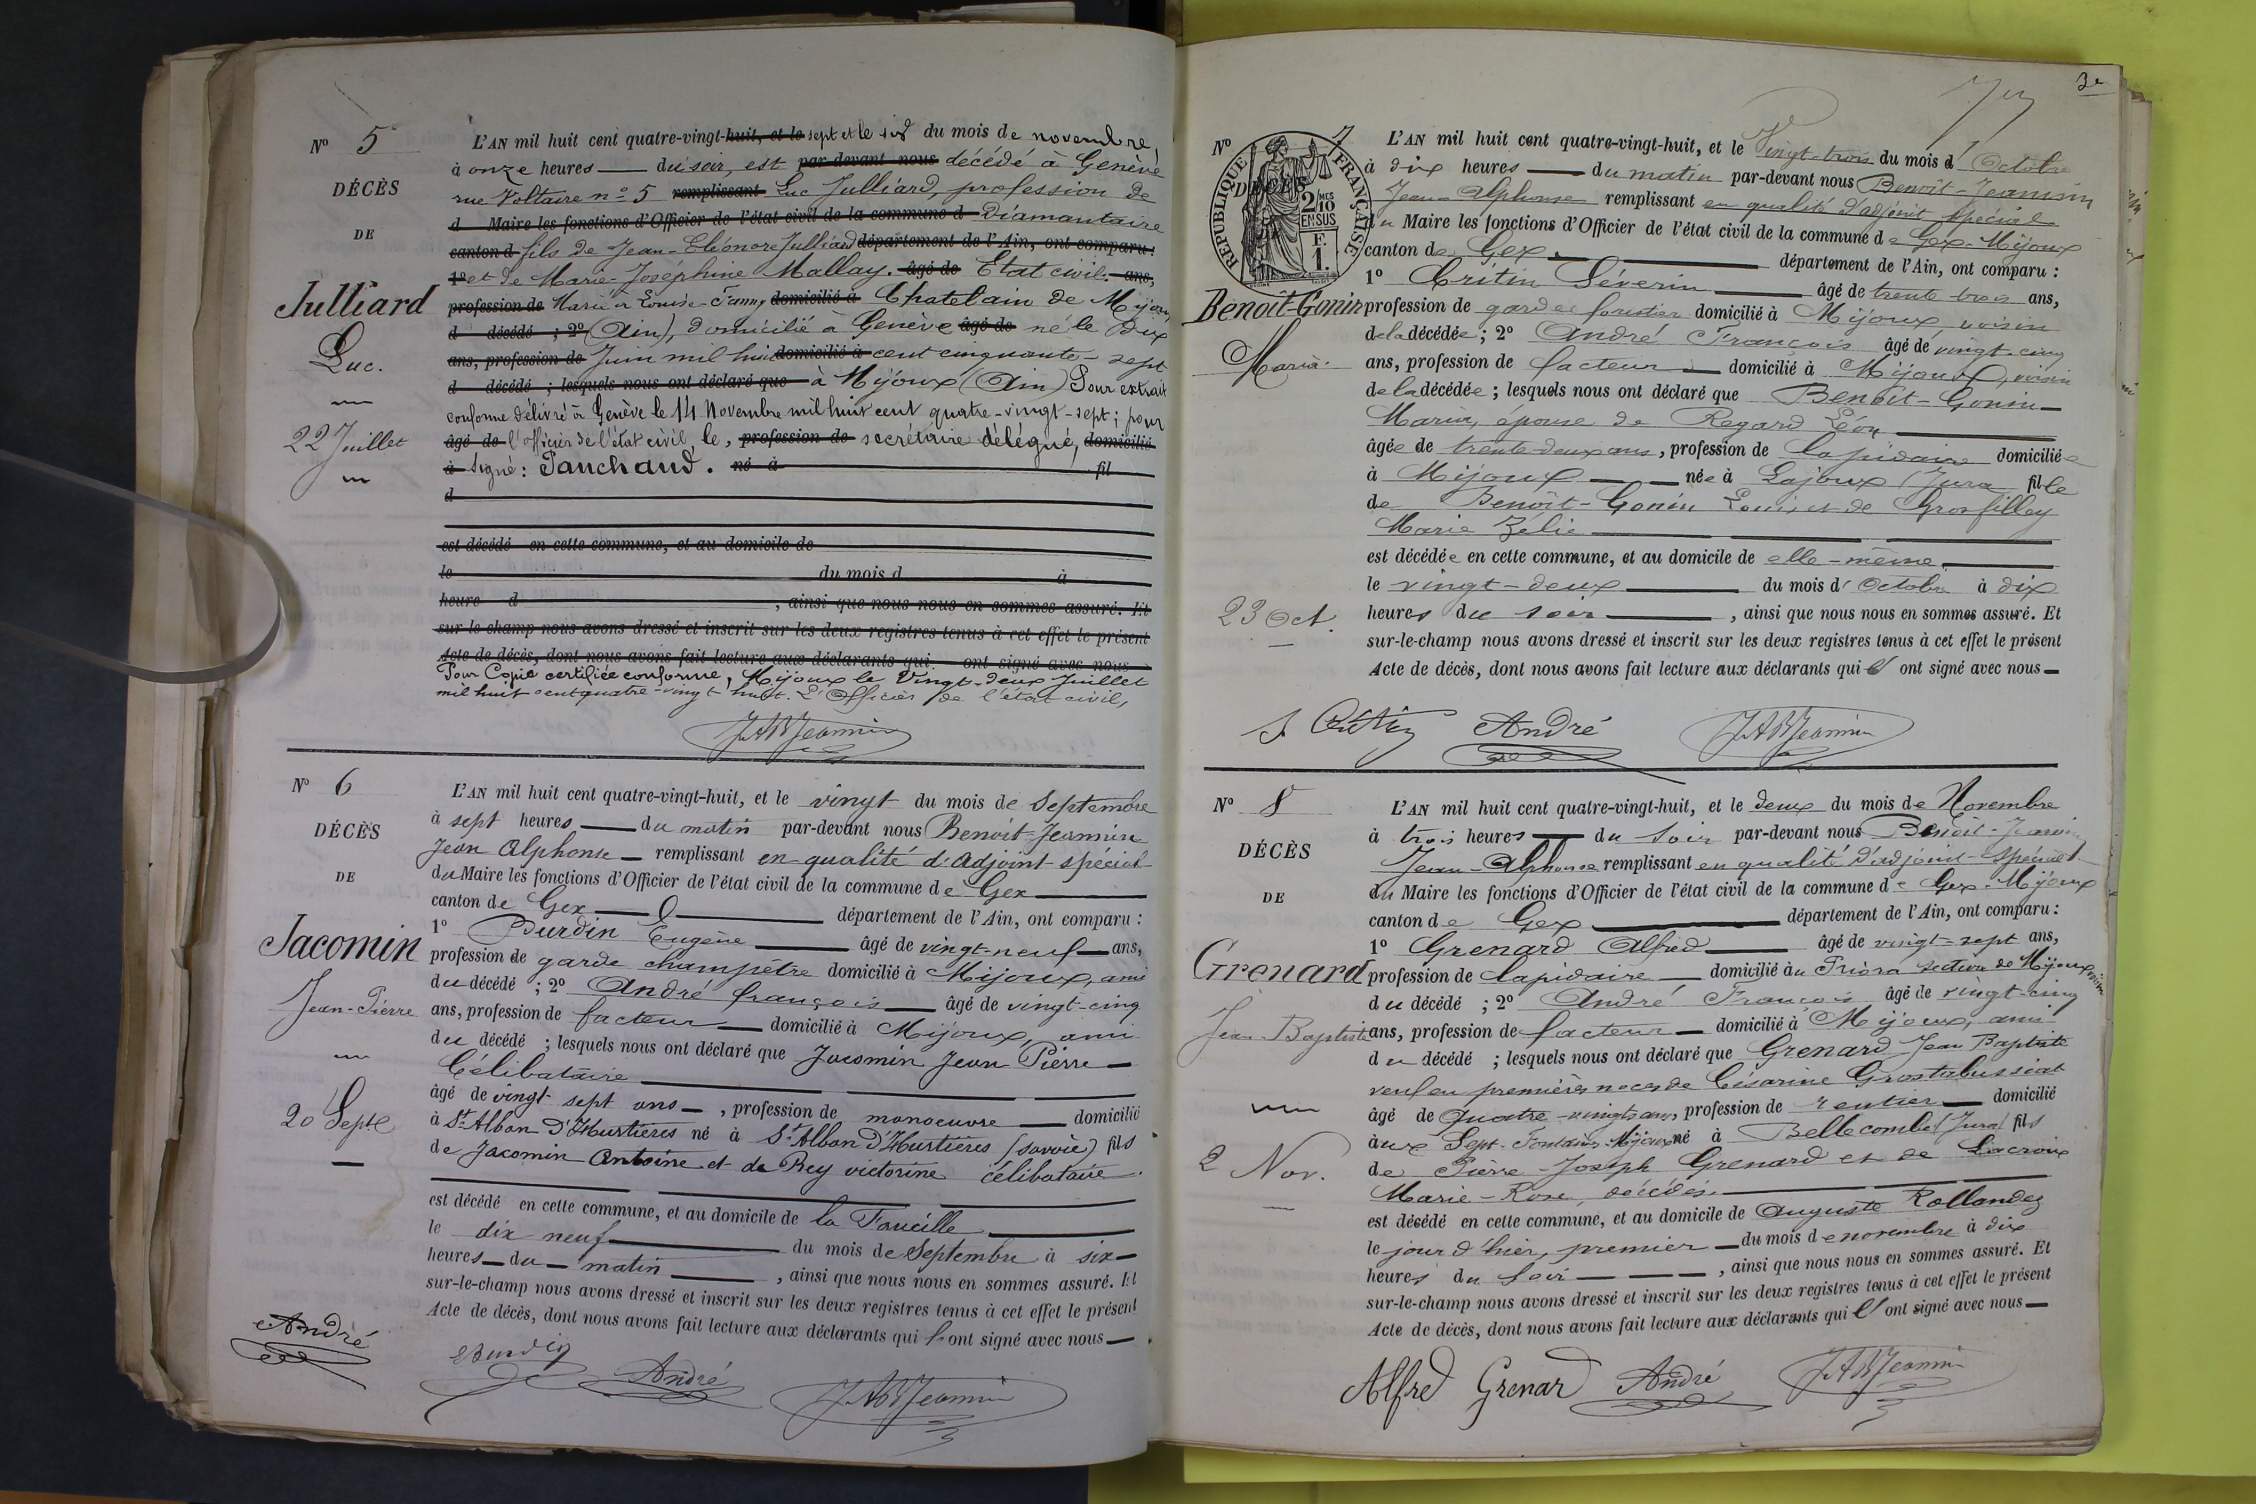 N° 5
DÉCÈS
DE
Julliard
Luc.
22 Juillet
L'AN mil huit cent quatre-vingt-huit, et le sept et le six du mois de novembre,
à onze heures du soir, est par-devant nous décédé à Genève
rue Voltaire n° 5 remplissant Luc Julliard, profession de
d Maire les fonctions d'Officier de l'état civil de la commune d Diamantaire
canton d fils de Jean-Eléonore Julliard département de l'Ain, ont comparu :
1° et de Marie-Joséphine Mallay. âgé de Etat civil: ans,
profession de Marié à Louise-Fanny domicilié à Chatelain de Mijoux
d décédé ; 2° (Ain), domicilié à Genève âgé de né le deux
ans, profession de Juin mil huit domicilié à cent cinquante-sept
d décédé ; lesquels nous ont déclaré que à Mijoux (Ain) Pour extrait
conforme délivré à Genève le 14 Novembre mil huit cent quatre-vingt-sept; pour
âgé de l'officier de l'état civil, le, profession de secrétaire délégué, domicilié
à Signé: Panchaud. né à fil
d
est décédé en cette commune, et au domicile de
le du mois d à
heure d , ainsi que nous nous en sommes assuré. Et
sur-le-champ nous avons dressé et inscrit sur les deux registres tenus à cet effet le présent
Acte de décès, dont nous avons fait lecture aux déclarants qui ont signé avec nous
Pour Copie certifiée conforme, Mijoux le Vingt-deux Juillet
mil huit cent quatre-vingt huit. L'Officier de l'état civil,
J A B Jeannin
N° 6
DÉCÈS
DE
Jacomin
Jean-Pierre
20 Septe
L'AN mil huit cent quatre-vingt-huit, et le vingt du mois de Septembre
à sept heures du matin par-devant nous Benoit-Jeannin
Jean Alphonse remplissant en qualité d'Adjoint spécial
du Maire les fonctions d'Officier de l'état civil de la commune de Gex
canton de Gex département de l'Ain, ont comparu :
1° Burdin Eugène âgé de vingt-neuf ans,
profession de garde champêtre domicilié à Mijoux, ami
du décédé ; 2° André françois âgé de vingt-cinq
ans, profession de facteur domicilié à Mijoux, ami
du décédé ; lesquels nous ont déclaré que Jacomin Jean Pierre
Célibataire
âgé de vingt sept ans, profession de manoeuvre domicilié
à St Alban D'Hurtières né à St Alban D'Hurtières (Savoie) fils
de Jacomin Antoine et de Rey victorine célibataire.
est décédé en cette commune, et au domicile de la Faucille
le dix neuf du mois de Septembre à six
heures du matin , ainsi que nous nous en sommes assuré. Et
sur-le-champ nous avons dressé et inscrit sur les deux registres tenus à cet effet le présent
Acte de décès, dont nous avons fait lecture aux déclarants qui l' ont signé avec nous
André
EBurdin André J A B Jeannin
3e
N° 7
DÉCÈS
RÉPUBLIQUE FRANÇAISE
2/10 EN SUS
F. 1.
Benoit-Gonin
Maria
23 Oct.
L'AN mil huit cent quatre-vingt-huit, et le Vingt-trois du mois d'Octobre
à dix heures du matin par-devant nous Benoit-Jeannin
Jean-Alphonse remplissant en qualité d'adjoint spécial
du Maire les fonctions d'Officier de l'état civil de la commune de Gex-Mijoux
canton de Gex département de l'Ain, ont comparu :
1° Critin Séverin âgé de trente trois ans,
profession de garde forestier domicilié à Mijoux, voisin
de la décédée ; 2° André François âgé de vingt-cinq
ans, profession de facteur domicilié à Mijoux, voisin
de la décédée ; lesquels nous ont déclaré que Benoit-Gonin
Maria, épouse de Regard Léon
âgée de trente deux ans, profession de lapidaire domiciliée
à Mijoux née à Lajoux (Jura fille
de Benoît-Gonin Louis et de Grosfilley
Marie Zélie
est décédée en cette commune, et au domicile de elle-même
le vingt-deux du mois d'Octobre à dix
heures du soir , ainsi que nous nous en sommes assuré. Et
sur-le-champ nous avons dressé et inscrit sur les deux registres tenus à cet effet le présent
Acte de décès, dont nous avons fait lecture aux déclarants qui l' ont signé avec nous
S. Critin André J A B Jeannin
N° 8
DÉCÈS
DE
Grenard
Jean-Baptiste
2 Nov.
L'AN mil huit cent quatre-vingt-huit, et le deux du mois de Novembre
à trois heures du soir par-devant nous Benoit-Jeannin
Jean-Alphonse remplissant en qualité d'adjoint-spécial
du Maire les fonctions d'Officier de l'état civil de la commune de Gex-Mijoux
canton de Gex département de l'Ain, ont comparu :
1° Grenard Alfred âgé de vingt-sept ans,
profession de lapidaire domicilié à section de Mijoux
du décédé ; 2° André François âgé de vingt-cinq
ans, profession de facteur domicilié à Mijoux, ami
du décédé ; lesquels nous ont déclaré que Grenard Jean Baptiste
veuf en premières noces de Césarine Grostabussiat
âgé de quatre-vingts ans, profession de rentier domicilié
aux Sept-Fontaines-Mijoux né à Bellecombe (Jura) fils
de Pierre-Joseph Grenard et de Lacroix
Marie-Rose, décédés.
est décédé en cette commune, et au domicile de Auguste Rollandez
le jour d'hier, premier du mois de novembre à dix
heures du soir , ainsi que nous nous en sommes assuré. Et
sur-le-champ nous avons dressé et inscrit sur les deux registres tenus à cet effet le présent
Acte de décès, dont nous avons fait lecture aux déclarants qui l' ont signé avec nous
Alfred Grenard André J A B Jeannin